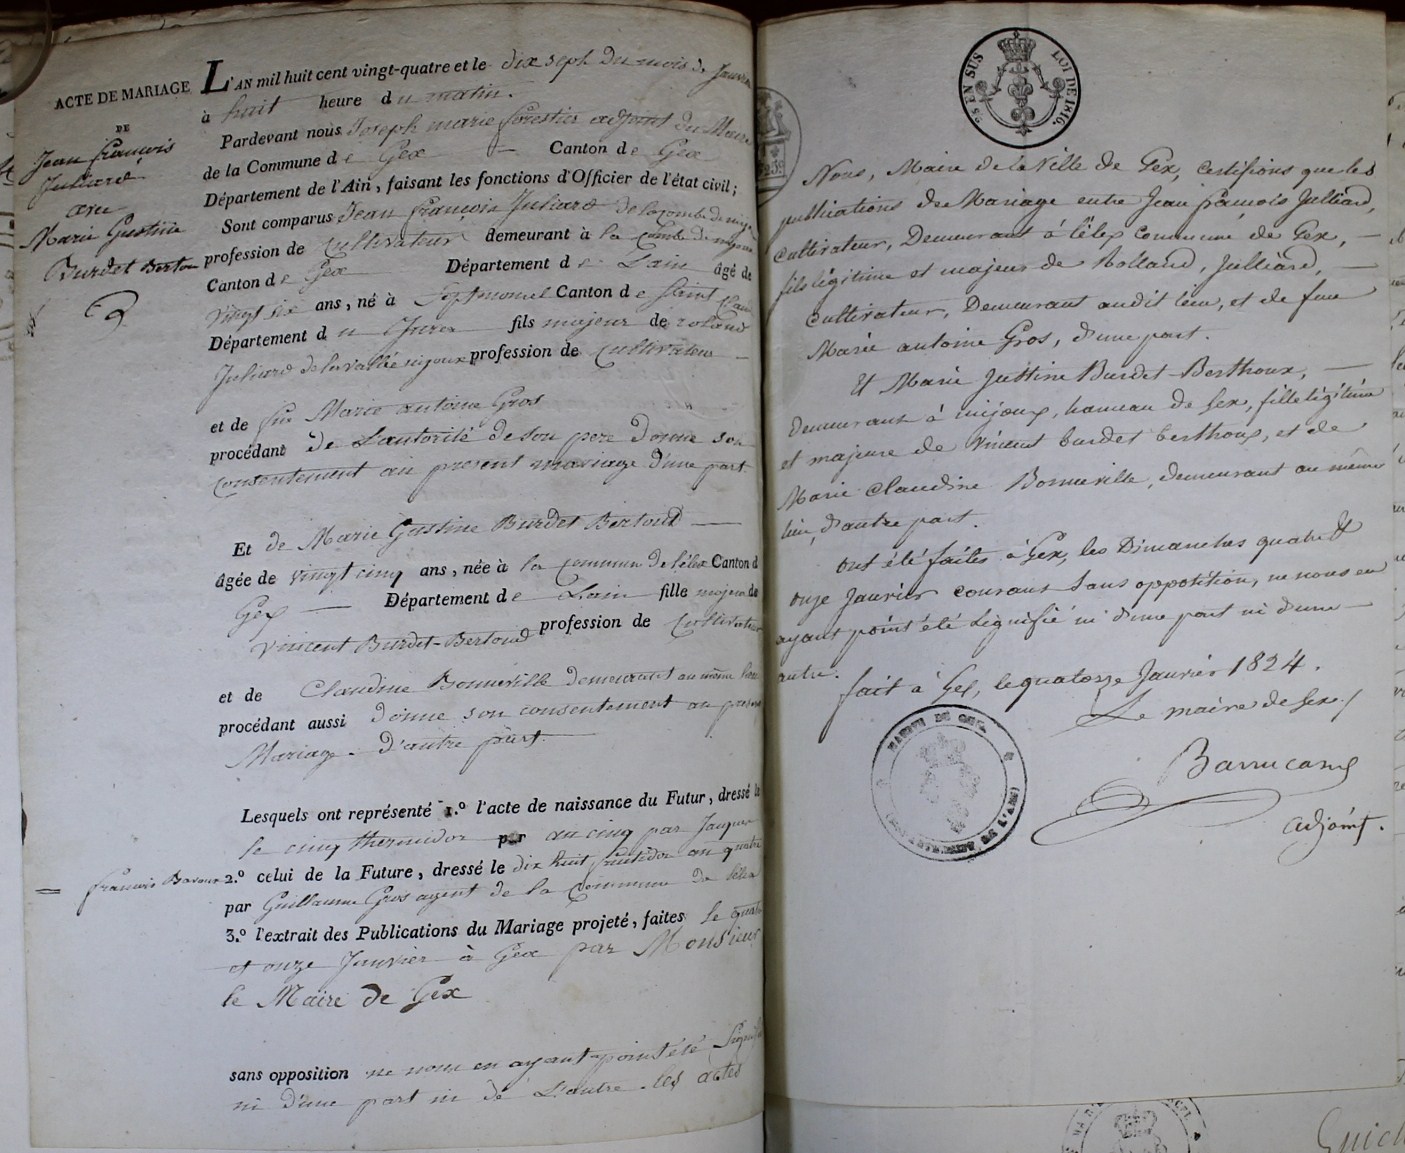 ACTE DE MARIAGE
DE
Jean François
Juliard
avec
Marie Gustine
Burdet Berton
L'AN mil huit cent vingt-quatre et le dix sept du mois de Janvier
à huit heure du matin.
Pardevant nous Joseph marie forestier adjoint du Maire
de la Commune de Gex — Canton de Gex
Département de l'Ain, faisant les fonctions d'Officier de l'état civil;
Sont comparus Jean françois Juliard de la combe de mijoux
profession de Cultivateur demeurant à la Combe de mijoux
Canton de Gex Département de Lain âgé de
vingt six ans, né à Septmoncel Canton de Saint Claude
Département du Jura fils majeur de roland
Juliard de la vallé mijoux profession de Cultivateur —
et de fue Marie antoine Gros
procédant de Lautorité de son pere Donne son
consentement au present mariage d'une part
Et de Marie Gustine Burdet Bertoud —
âgée de vingt cinq ans, née à la commun de lélex Canton d
Gex — Département de Lain fille majeur de
Vincent Burdet-Bertoud profession de Cultivateur
et de Claudine Bonneville demeurant au même lieu
procédant aussi Donne son consentement au present
Mariage d'autre part —
Lesquels ont représenté 1.º l'acte de naissance du Futur, dressé le
le cinq thermidor par an cinq par Jacques
= francois 2.º celui de la Future, dressé le dix huit fructidor an quatre
par Guillaume Gros agent de la Commune de lélex
3.º l'extrait des Publications du Mariage projeté, faites le quatre
et onze Janvier à Gex par Monsieur
le Maire de Gex
sans opposition ne nous en ayant point été Signifié
ni d'une part ni de L'autre. les actes
25 EN SUS LOI DE 1816.
Nous, Maire de la Ville de Gex, certifions que les
publications de Mariage entre Jean françois Julliard,
cultivateur, Demeurant à lélex commune de Gex, —
fils légitime et majeur de Rolland, Julliard, —
cultivateur, Demeurant audit lieu, et de feue
Marie antoine Gros, d'une part.
Et Marie Justine Burdet-Berthoux, —
demeurant à mijoux, hameau de Gex, fille légitime
et majeure de Vincent burdet berthoux, et de
Marie Claudine Bonneville, demeurant au même
lieu, d'autre part.
ont été faites à Gex, les Dimanches quatre et
onze Janvier courant sans opposition, ne nous en
ayant point été signifié ni d'une part ni d'une —
autre.
fait à Gex, le quatorze Janvier 1824.
Le maire de Gex
MAIRIE DE GEX
DÉPARTEMENT DE L'AIN
adjoint.